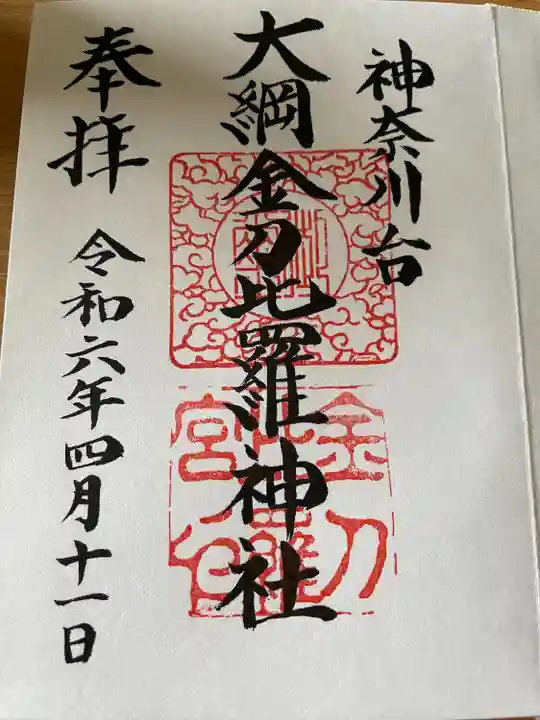 神奈川台
大綱金刀比羅神社
奉拝
令和六年四月十一日
金刀
比羅
宮